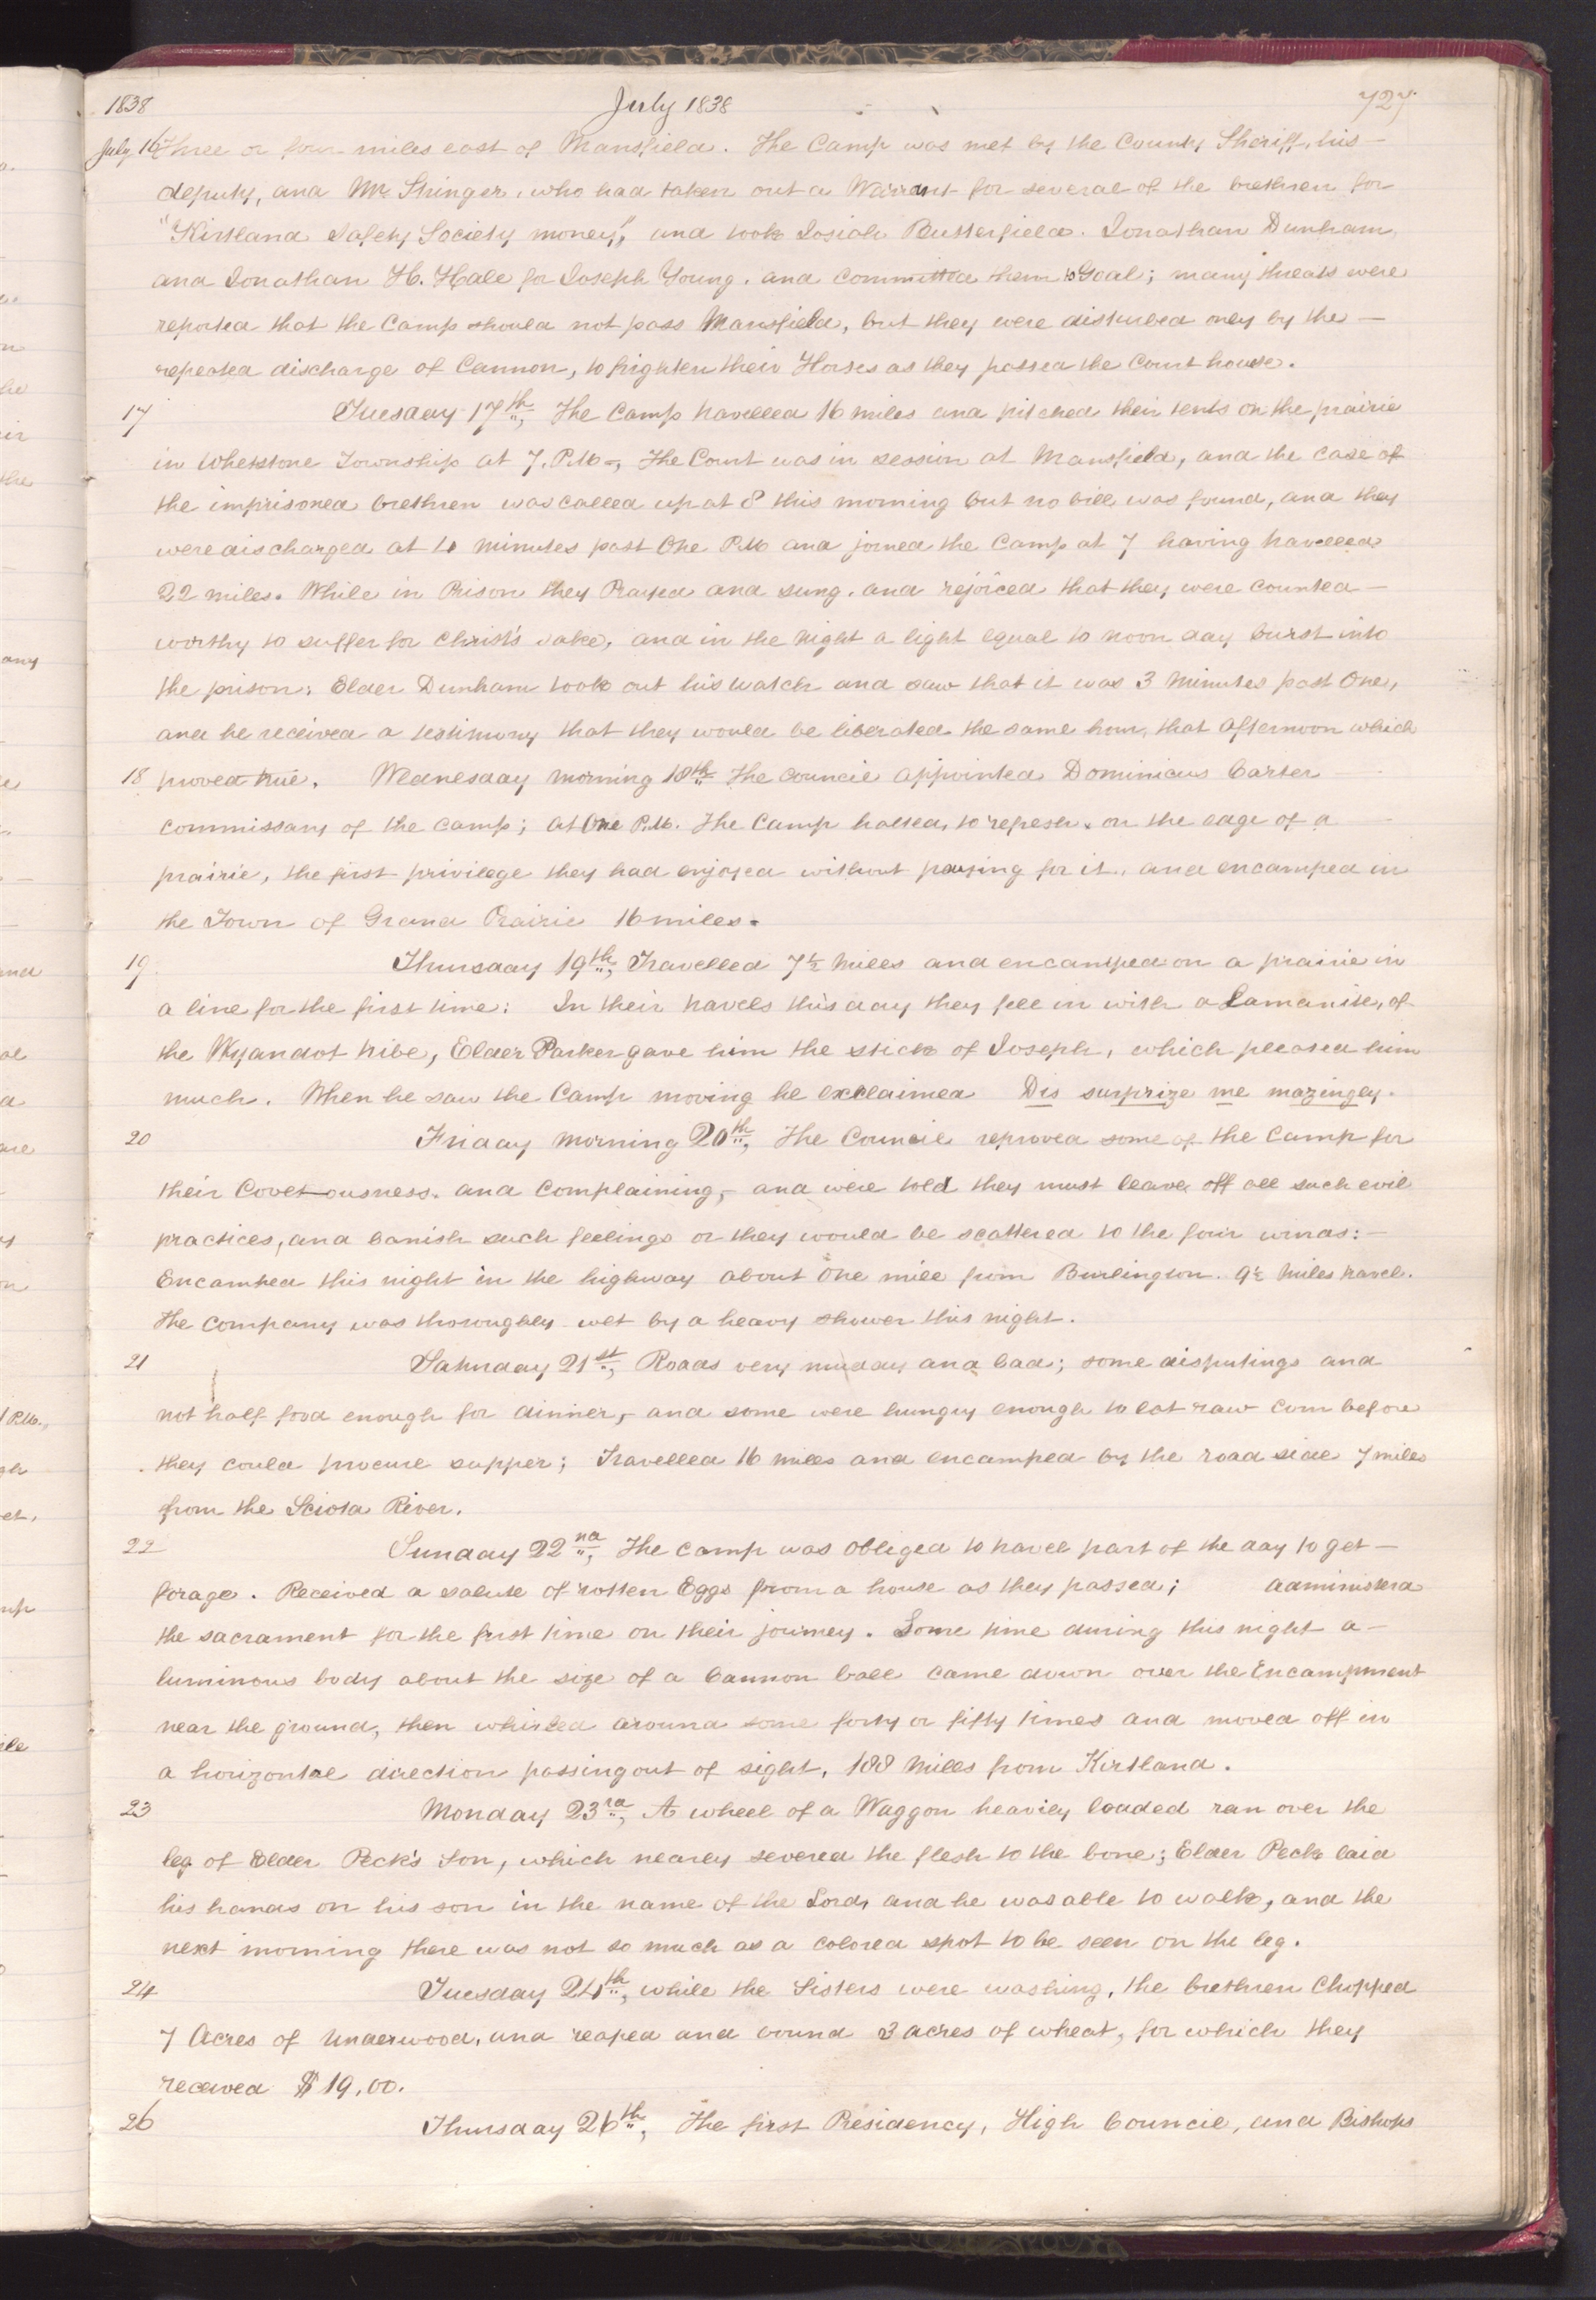 1838 July 1838 727
July 16 Three or four miles east of Mansfield. The Camp was met by the County Sheriff, his
deputy, and Mr. Stringer, who had taken out a Warrant for several of the brethren for
"Kirtland Safety Society money", and took Josiah Butterfield. Jonathan Dunham,
and Jonathan H. Hale for Joseph Young. and committed them to Goal; many threats were
reported that the Camp should not pass Mansfield, but they were disturbed only by the
repeated discharge of Cannon, to frighten their Horses as they passed the Court house.
17 Tuesday 17th, The Camp travelled 16 miles and pitched their tents on the prairie
in Whetstone Township at 7. P.M., The Court was in session at Mansfield, and the case of
the imprisoned brethren was called up at 8 this morning but no bill was found, and they
were discharged at 10 minutes past One P.M and joined the Camp at 7 having travelled
22 miles. While in Prison they Prayed and sung. and rejoiced that they were counted
worthy to suffer for Christ's sake, and in the night a light equal to noon day burst into
the prison; Elder Dunham took out his watch and saw that it was 3 minutes past One,
and he received a testimony that they would be liberated the same hour, that afternoon which
18 proved true. Wednesday morning 18th The council appointed Dominicus Carter
commissary of the camp; at One P.M. The Camp halted, to refresh. on the edge of a
prairie, the first privilege they had enjoyed without paying for it, and encamped in
the Town of Grand Prairie 16 miles.
19 Thursday 19th, Travelled 7½ miles and encamped on a prairie in
a line for the first time: In their travels this day they fell in with a Lamanite, of
the Wyandot tribe, Elder Parker gave him the stick of Joseph, which pleased him
much. When he saw the Camp moving he exclaimed Dis surprize me mazingly.
20 Friday morning 20th, The Council reproved some of the camp for
their Covetousness. and complaining, and were told they must leave off all such evil
practices, and banish such feelings or they would be scattered to the four winds:
Encamped this night in the highway about One mile from Burlington. 9½ miles travel.
The company was thoroughly wet by a heavy shower this night.
21 Saturday 21st, Roads very muddy and bad; some disputings and
not half food enough for dinner, and some were hungry enough to eat raw corn before
they could procure supper; Travelled 16 miles and encamped by the road side 7 miles
from the Sciota River.
22 Sunday 22nd, The camp was obliged to travel part of the day to get
forage. Received a salute of rotten Eggs from a house as they passed; administerd
the sacrament for the first time on their journey. Some time during this night a
luminous body about the size of a Cannon ball came down over the Encampment
near the ground, then whirled around some forty or fifty times and moved off in
a horizontal direction passing out of sight, 188 Miles from Kirtland.
23 Monday 23rd, A wheel of a Waggon heavily loaded ran over the
leg of Elder Peck's Son, which nearly severed the flesh to the bone; Elder Peck laid
his hands on his son in the name of the Lord, and he was able to walk, and the
next morning there was not so much as a colored spot to be seen on the leg.
24 Tuesday 24th, while the Sisters were washing, the brethren Chopped
7 Acres of Underwood, and reaped and bound 3 acres of wheat, for which they
received $19,00.
26 Thursday 26th, The first Presidency, High Council, and Bishops